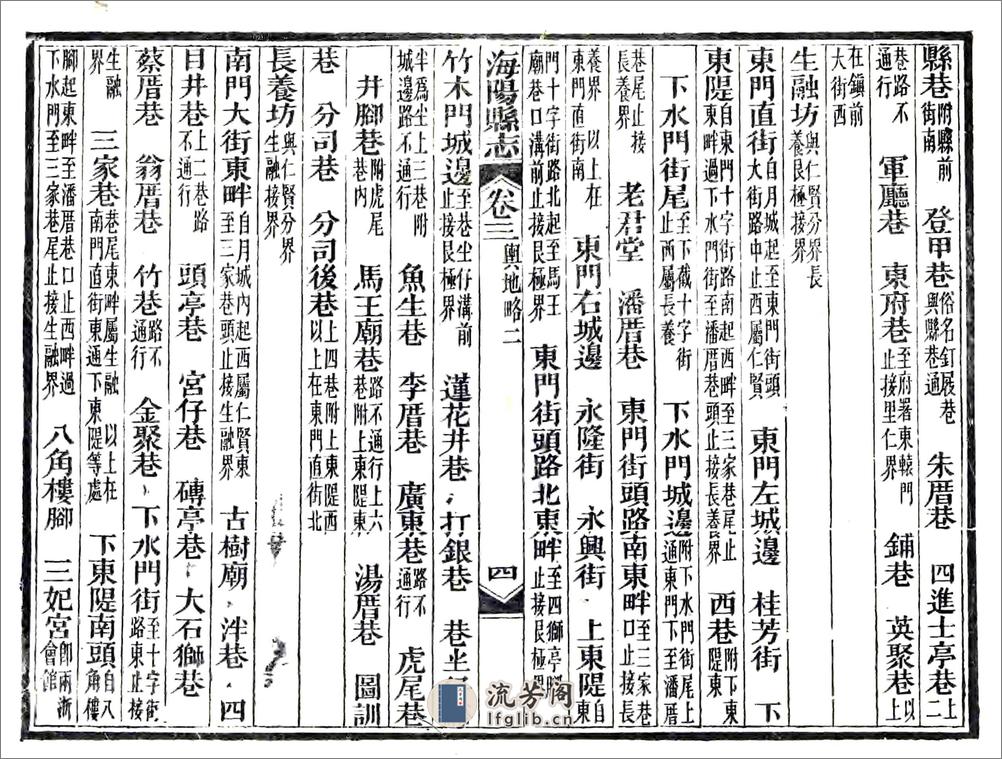 縣巷附縣前街南 登甲巷俗名釘屐巷與縣巷通 朱厝巷 四進士亭巷上二
巷路不通行 軍廳巷 東府巷至府署東轅門止接里仁界 鋪巷 英聚巷以上
在鎮前大街西
生融坊與仁賢分界長養艮極接界
東門直街自月城起至東門街頭大街路中止西屬仁賢 東門左城邊 桂芳街 下
東隄自東門十字街路南起西畔至三家巷尾止東畔過下水門街至潘厝巷頭止接長養界 西巷附下東隄東
下水門街尾自下截十字街至止西屬長養 下水門城邊附下水門街尾上通東門下至潘厝
巷尾止接長養界 老君堂 潘厝巷 東門街頭路南東畔至三家巷口止接長
養界 以上在東門直街南 東門右城邊 永隆街 永興街 上東隄自東
門十字街路北起至馬王廟巷口溝前止接艮極界 東門街頭路北東畔至四獅亭腳止接艮極界
海陽縣志 卷三 輿地略二 四
竹木門城邊至巷坐仔溝前止接艮極界 蓮花井巷 打銀巷 巷坐
半為坐上三巷附城邊路不通行 魚生巷 李厝巷 廣東巷路不通行 虎尾巷
井腳巷附虎尾巷內 馬王廟巷路不通行上六巷附上東隄東 湯厝巷 圖訓
巷 分司巷 分司後巷上四巷附上東隄西以上在東門直街北
長養坊與仁賢分界生融接界
南門大街東畔自月城內起西屬仁賢東至三家巷頭止接生融界 古樹廟 泮巷 四
目井巷上二巷路不通行 頭亭巷 宮仔巷 磚亭巷 大石獅巷
蔡厝巷 翁厝巷 竹巷路不通行 金聚巷 下水門街至十字街路東止接
生融界 三家巷巷尾東畔屬生融南門直街東通下東隄等處 以上在 下東隄南頭自八角樓
腳起東畔至潘厝巷口止西畔過下水門至三家巷尾止接生融界 八角樓腳 三妃宮即兩浙會館
流芳阁
lfglib.cn